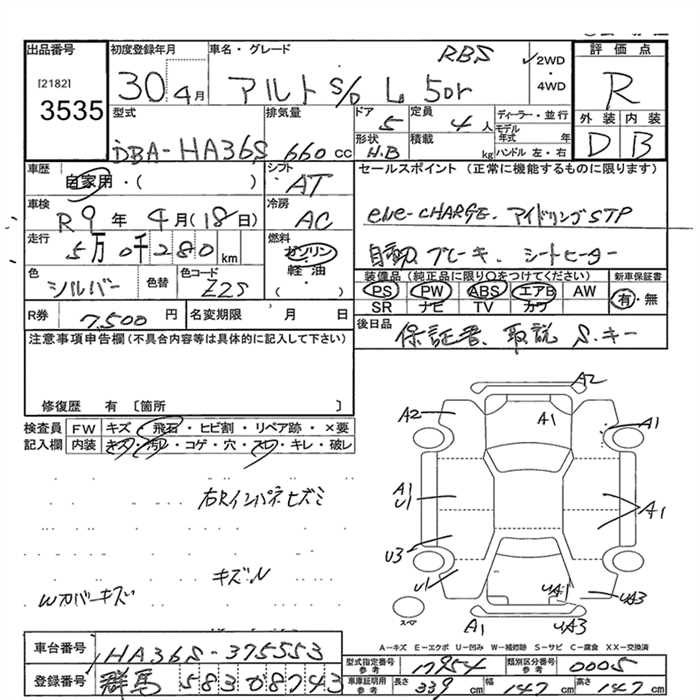 出品番号 初度登録年月 車名・グレード RBS ✓2WD ・4WD 評価点
[2182] 3535 30 4月 アルト S/D L 5Dr R
型式 排気量 ドア 定員 ディーラー・並行 外装 内装
DBA-HA36S 660cc 5 4人 モデル年式 年 D B
形状 積載 ハンドル 左・右
H.B kg
車歴 シフト セールスポイント (正常に機能するものに限ります)
自家用・( ) AT
車検 冷房 ene-CHARGE. アイドリングSTP
R9年 4月(18日) AC
走行 燃料 自動ブレーキ. シートヒーター
5万0千280km ガソリン
軽・油
( )
色 色替 色コード 装備品 (純正品に限り○をつけてください) 新車保証書
シルバー Z2S PS PW ABS エアB AW 有・無
SR ナビ TV カワ
R券 7,500円 名変期限 月 日 後日品
保証書. 取説 S.キー
注意事項申告欄(不具合内容等は具体的に記入して下さい)
修復歴 有 〔箇所 〕
検査員 FW キズ・飛石・ヒビ割・リペア跡・×要
記入欄 内装 キズ・汚れ・コゲ・穴・スレ・キレ・破レ
A2
A2 A1 A1
右Rインパネヒズミ
A1
U1 A1
U3
キズN
U1 UA1 UA3
Wカバーキズ
スペア
A1 UA3
A-キズ E-エクボ U-凹み W-補修跡 S-サビ C-腐食 XX-交換済
車台番号 HA36S-375553
型式指定番号 参考 17954 類別区分番号 参考 0005
登録番号 群馬 583 0 8743
車庫証明用 参考 長さ 339cm 幅 147cm 高さ 147cm